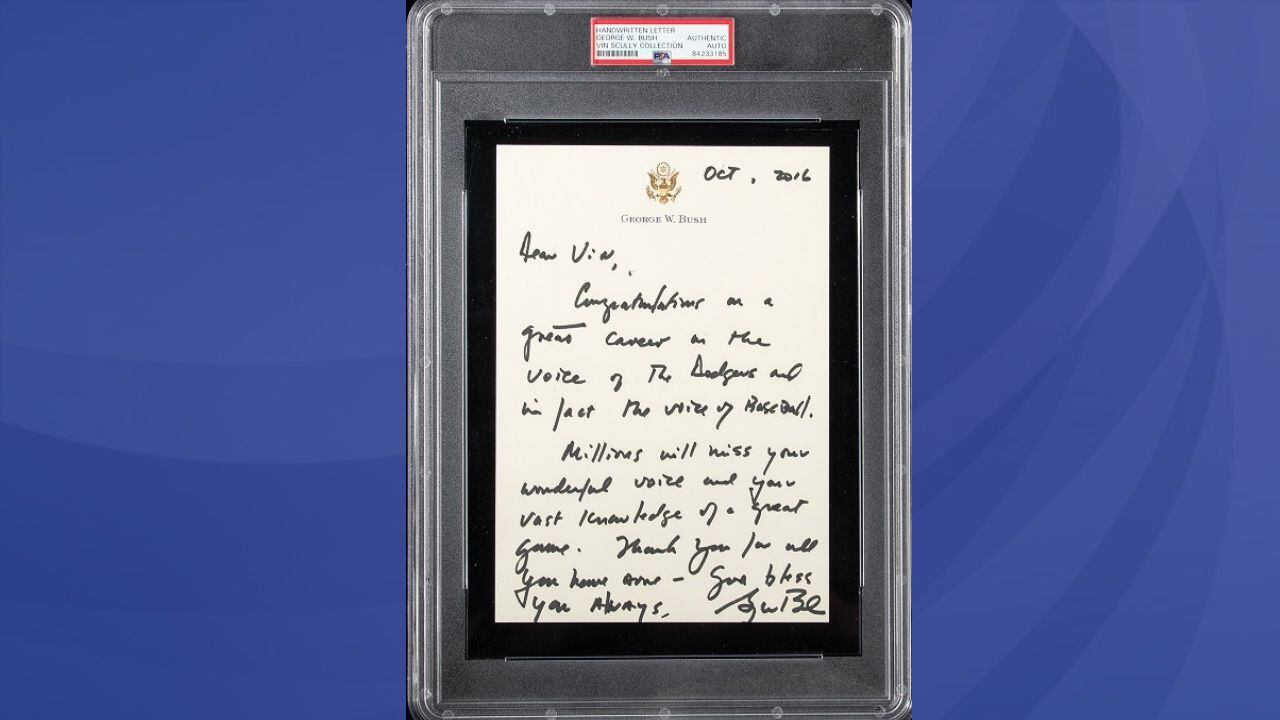 HANDWRITTEN LETTER
GEORGE W. BUSH AUTHENTIC
VIN SCULLY COLLECTION AUTO
PSA 84233185
Oct, 2016
GEORGE W. BUSH
Dear Vin,
Congratulations on a
great career as the
voice of The Dodgers and
in fact the voice of Baseball.
Millions will miss your
wonderful voice and your
vast knowledge of a great
game. Thank you for all
you have done - God bless
you Always.